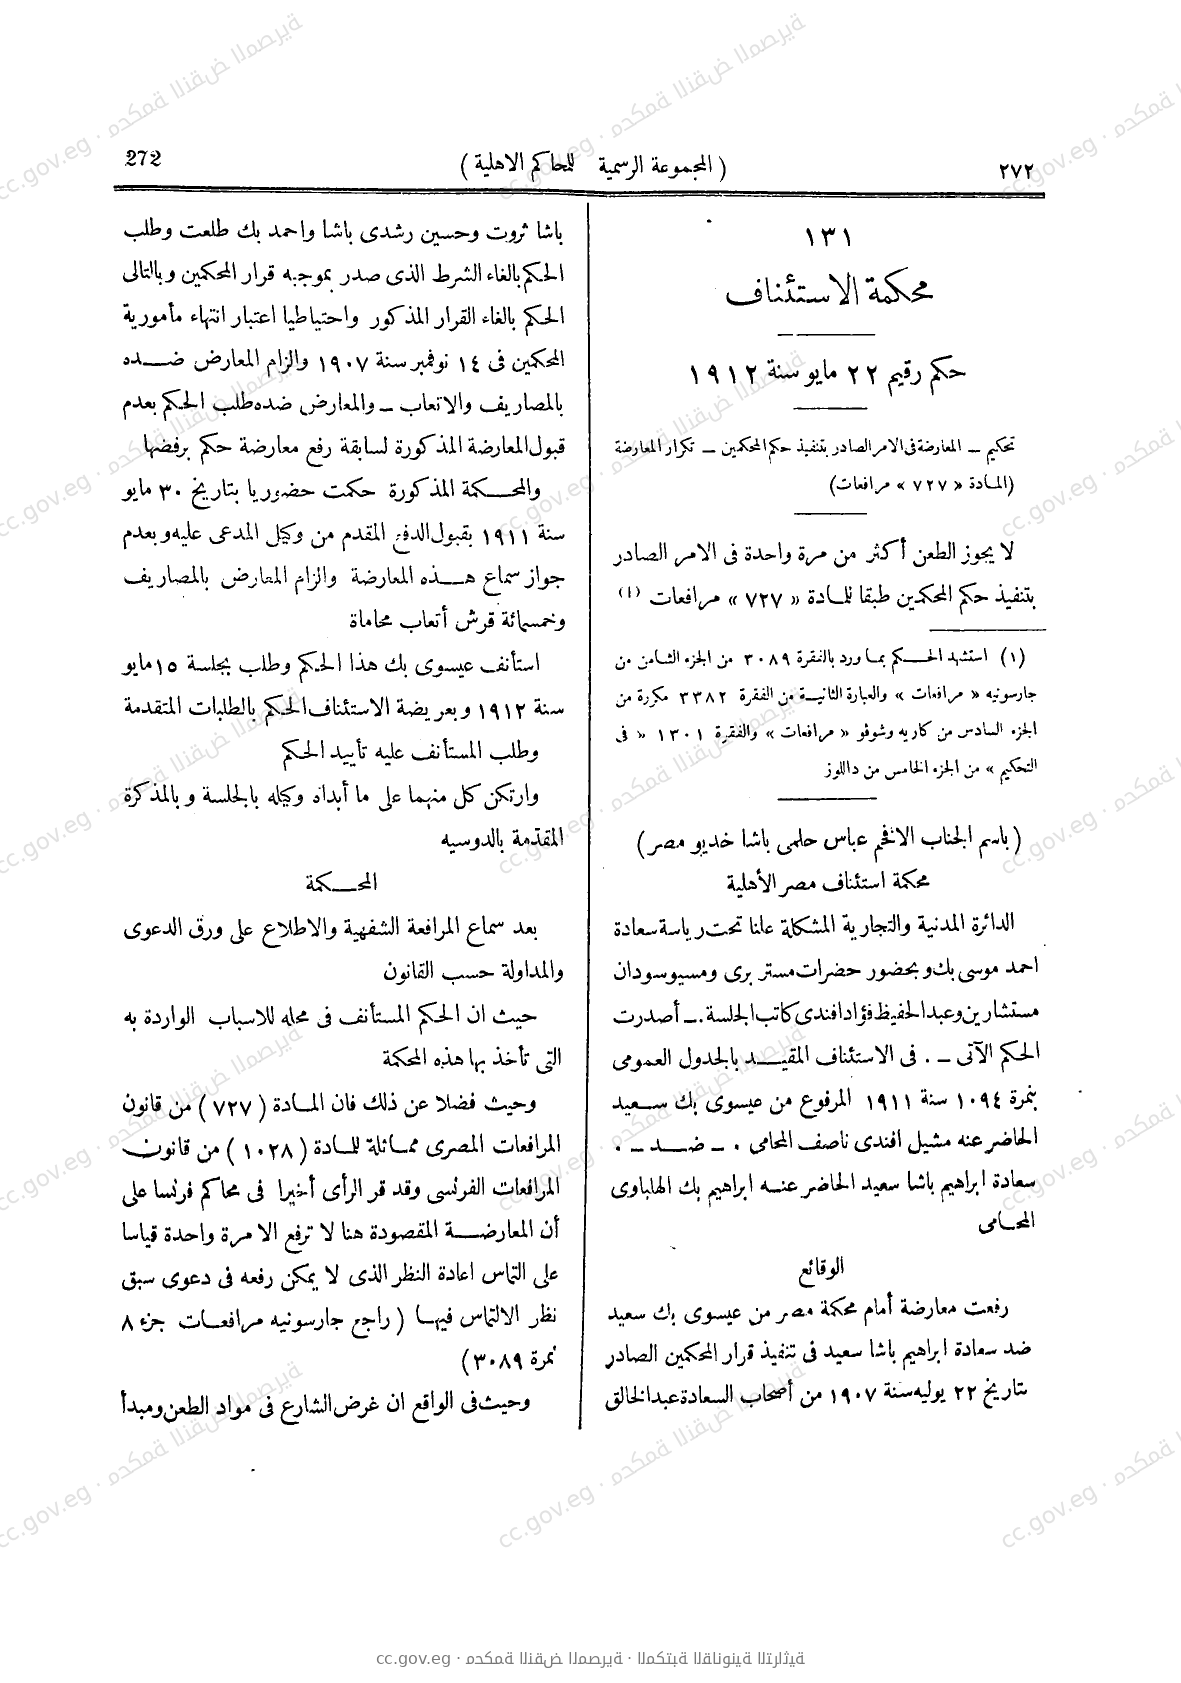 ٢٧٢
( المجموعة الرسمية للمحاكم الاهلية )
272
١٣١
محكمة الاستئناف
حكم رقيم ٢٢ مايو سنة ١٩١٢
تحكيم ــ المعارضة فى الامر الصادر بتنفيذ حكم المحكمين ــ تكرار المعارضة
(المادة « ٧٢٧ » مرافعات)
لا يجوز الطعن أكثر من مرة واحدة فى الامر الصادر
بتنفيذ حكم المحكمين طبقا للمادة « ٧٢٧ » مرافعات (١)
(١) استشهد الحكم بما ورد بالفقرة ٣٠٨٩ من الجزء الثامن من
جارسونيه « مرافعات » والعبارة الثانية من الفقرة ٣٣٨٢ مكررة من
الجزء السادس من كاريه وشوفو « مرافعات » والفقرة ١٣٠١ « فى
التحكيم » من الجزء الخامس من داللوز
( باسم الجناب الافخم عباس حلمى باشا خديو مصر )
محكمة استئناف مصر الأهلية
الدائرة المدنية والتجارية المشكلة علنا تحت رياسة سعادة
احمد موسى بك وبحضور حضرات مستر برى ومسيو سودان
مستشارين وعبد الحفيظ فؤاد افندى كاتب الجلسة .ــ أصدرت
الحكم الآتى ــ . فى الاستئناف المقيد بالجدول العمومى
بنمرة ١٠٩٤ سنة ١٩١١ المرفوع من عيسوى بك سعيد
الحاضر عنه مشيل افندى ناصف المحامى . ــ ضد ــ .
سعادة ابراهيم باشا سعيد الحاضر عنه ابراهيم بك الهلباوى
المحامى
الوقائع
رفعت معارضة أمام محكمة مصر من عيسوى بك سعيد
ضد سعادة ابراهيم باشا سعيد فى تنفيذ قرار المحكمين الصادر
بتاريخ ٢٢ يوليه سنة ١٩٠٧ من أصحاب السعادة عبد الخالق
باشا ثروت وحسين رشدى باشا واحمد بك طلعت وطلب
الحكم بالغاء الشرط الذى صدر بموجبه قرار المحكمين وبالتالى
الحكم بالغاء القرار المذكور واحتياطيا اعتبار انتهاء مأمورية
المحكمين فى ١٤ نوفمبر سنة ١٩٠٧ والزام المعارض ضده
بالمصاريف والاتعاب ــ والمعارض ضده طلب الحكم بعدم
قبول المعارضة المذكورة لسابقة رفع معارضة حكم برفضها
والمحكمة المذكورة حكمت حضوريا بتاريخ ٣٠ مايو
سنة ١٩١١ بقبول الدفع المقدم من وكيل المدعى عليه وبعدم
جواز سماع هذه المعارضة والزام المعارض بالمصاريف
وخمسمائة قرش أتعاب محاماة
استأنف عيسوى بك هذا الحكم وطلب بجلسة ١٥ مايو
سنة ١٩١٢ وبعريضة الاستئناف الحكم بالطلبات المتقدمة
وطلب المستأنف عليه تأييد الحكم
وارتكن كل منهما على ما أبداه وكيله بالجلسة وبالمذكرة
المقدّمة بالدوسيه
المحكمة
بعد سماع المرافعة الشفهية والاطلاع على ورق الدعوى
والمداولة حسب القانون
حيث ان الحكم المستأنف فى محله للاسباب الواردة به
التى تأخذ بها هذه المحكمة
وحيث فضلا عن ذلك فان المادة ( ٧٢٧ ) من قانون
المرافعات المصرى مماثلة للمادة ( ١٠٢٨ ) من قانون
المرافعات الفرنسى وقد قر الرأى أخيرا فى محاكم فرنسا على
أن المعارضة المقصودة هنا لا ترفع الا مرة واحدة قياسا
على التماس اعادة النظر الذى لا يمكن رفعه فى دعوى سبق
نظر الالتماس فيها ( راجع جارسونيه مرافعات جزء ٨
نمرة ٣٠٨٩ )
وحيث فى الواقع ان غرض الشارع فى مواد الطعن ومبدأ
cc.gov.eg · محكمة النقض المصرية · المكتبة القانونية التراثية